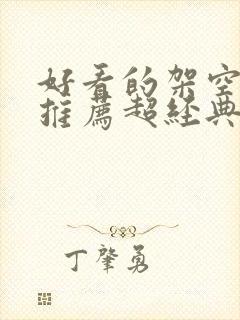 好看的架空
推薦超経典
丁肇勇